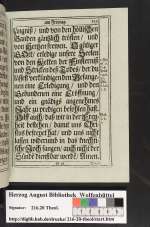 am Freytag.
Aengsten / und von den höllischen
Banden gäntzlich erlösen / und
von Hertzen freuen. O gütiger
Gott / erledige unsere Seelen
von den Ketten der Finsternüß
und Stricken des Todes / der du
selbst verkündigen den Gefangenen
eine Erledigung / und
den Gebundenen eine Eröffnung /
und ein gnädiges angenehmes
Jahr zu predigen befohlen hast.
Hilff auch / daß wir in der
heit bestehen / damit uns Christus
befreyet hat / und uns nicht
lassen wiederumb in das knechtische
Joch fangen / auch nicht der
Sünde dienstbar werden / Amen.
Herzog August Bibliothek Wolfenbüttel
Signatur: 216.20 Theol.
http://diglib.hab.de/drucke/216-20-theol/start.htm